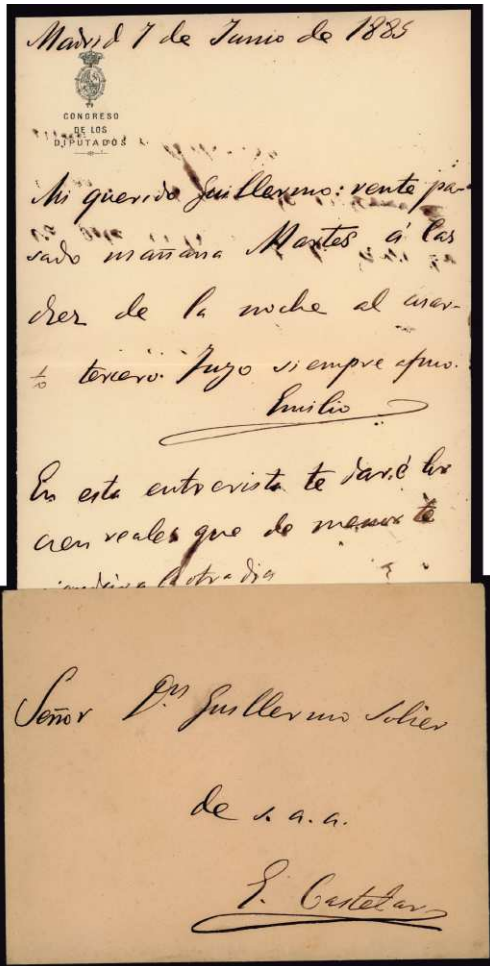 Madrid 7 de Junio de 1885
CONGRESO
DE LOS
DIPUTADOS
Mi querido Guillermo: vente pa-
sado mañana Martes á las
diez de la noche al cuar-
to tercero. Tuyo siempre afmo.
Emilio
En esta entrevista te daré los
cien reales que de menos te
otro dia
Señor Dn Guillermo Solier
de s. a. a.
E. Castelar